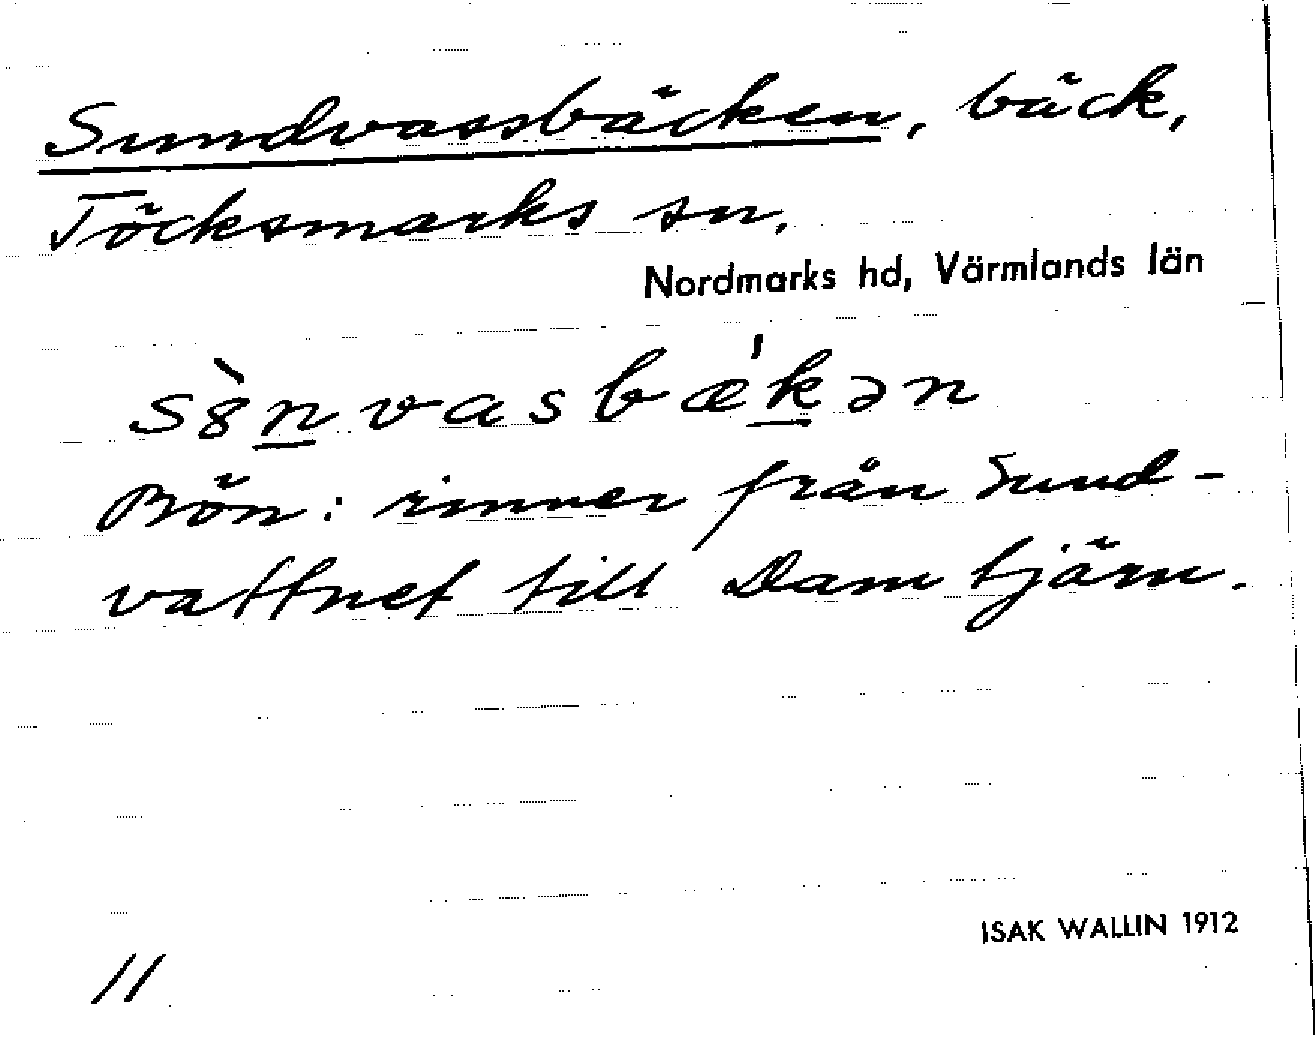 Sundvassbäcken, bäck,
Töcksmarks sn.
Nordmarks hd, Värmlands län
sȣ̀nvasbæ̍kən
Bön: rinner från Sund-
vattnet till Damtjärn.
ISAK WALLIN 1912
11